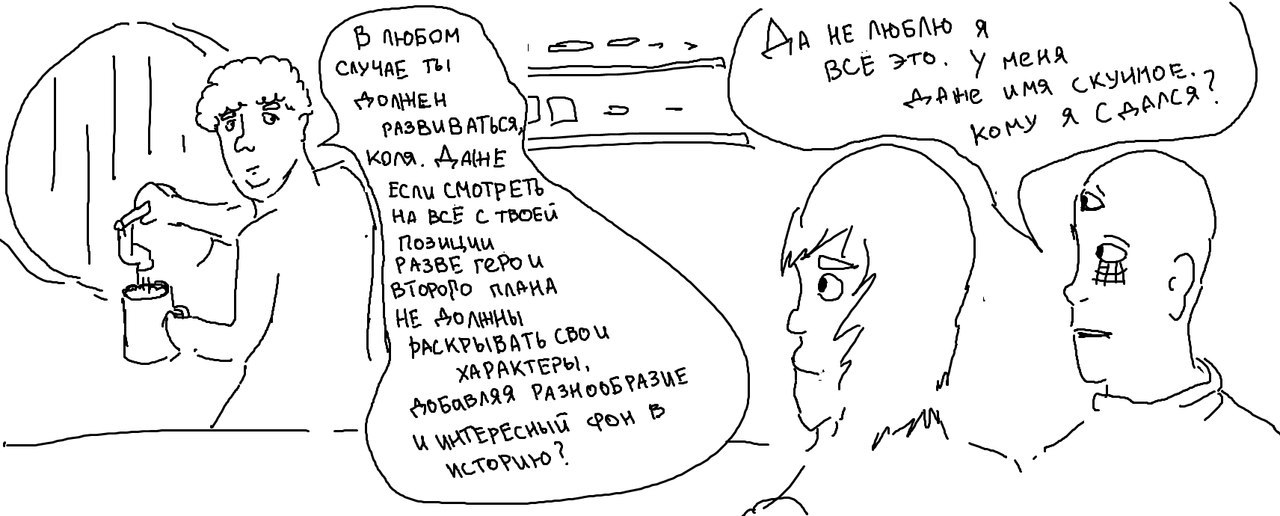 В ЛЮБОМ
СЛУЧАЕ ТЫ
ДОЛЖЕН
РАЗВИВАТЬСЯ,
КОЛЯ. ДАЖЕ
ЕСЛИ СМОТРЕТЬ
НА ВСЁ С ТВОЕЙ
ПОЗИЦИИ
РАЗВЕ ГЕРОИ
ВТОРОГО ПЛАНА
НЕ ДОЛЖНЫ
РАСКРЫВАТЬ СВОИ
ХАРАКТЕРЫ,
ДОБАВЛЯЯ РАЗНООБРАЗИЕ
И ИНТЕРЕСНЫЙ ФОН В
ИСТОРИЮ?
ДА НЕ ЛЮБЛЮ Я
ВСЁ ЭТО. У МЕНЯ
ДАЖЕ ИМЯ СКУЧНОЕ.
КОМУ Я СДАЛСЯ?